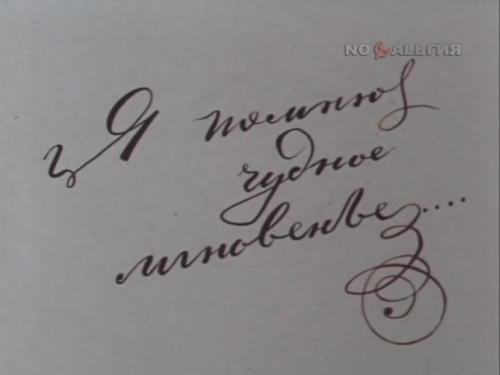 NOСТАЛЬГИЯ
Я помню
чудное
мгновенье....